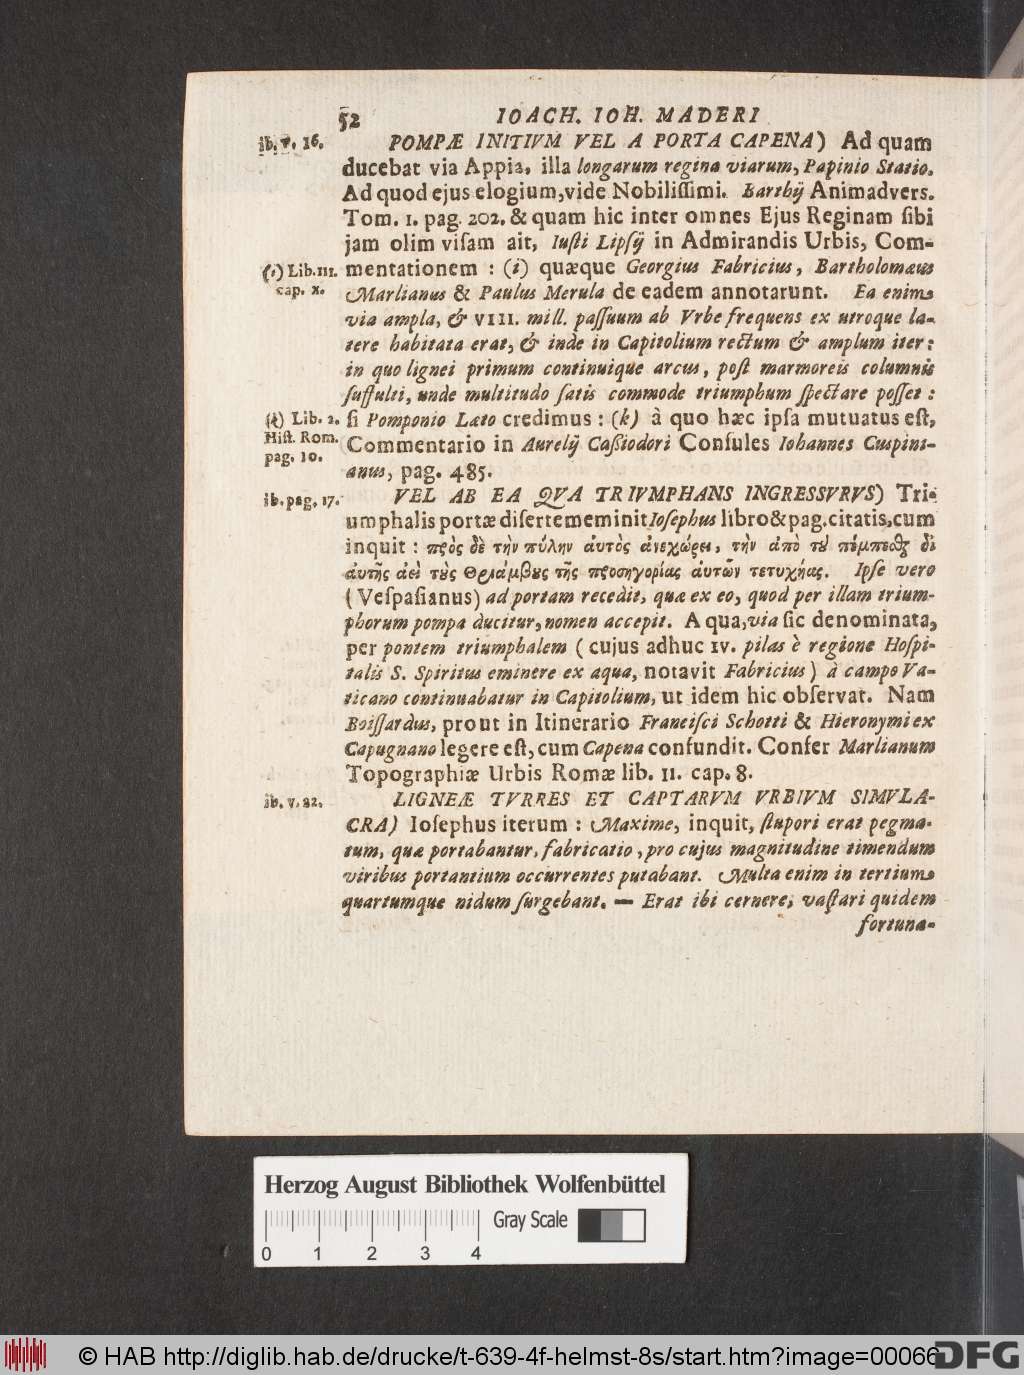 52 IOACH. IOH. MADERI
ib. v. 16. POMPÆ INITIVM VEL A PORTA CAPENA) Ad quam
ducebat via Appia, illa longarum regina viarum, Papinio Statio.
Ad quod ejus elogium, vide Nobilissimi. Barthij Animadvers.
Tom. 1. pag. 202. & quam hic inter omnes Ejus Reginam sibi
jam olim visam ait, Iusti Lipsij in Admirandis Urbis, Com-
(i) Lib. III. mentationem : (i) quæque Georgius Fabricius, Bartholomæus
cap. x. Marlianus & Paulus Merula de eadem annotarunt. Ea enim
via ampla, & VIII. mill. passuum ab Vrbe frequens ex utroque la-
tere habitata erat, & inde in Capitolium rectum & amplum iter:
in quo lignei primum continuique arcus, post marmoreis columnis
suffulti, unde multitudo satis commode triumphum spectare posset :
(k) Lib. 2. si Pomponio Læto credimus : (k) à quo hæc ipsa mutuatus est,
Hist. Rom. Commentario in Aurelij Cassiodori Consules Iohannes Cuspini-
pag. 10. anus, pag. 485.
ib. pag. 17. VEL AB EA QVA TRIVMPHANS INGRESSVRVS) Tri-
umphalis portæ diserte meminit Iosephus libro & pag. citatis, cum
inquit : πρὸς δὲ τὴν πύλην ἀυτὸς ἀνεχώρει, τὴν ἀπὸ τοῦ πέμπεσθαι δι
ἀυτῆς ἀεὶ τοὺς Θριάμβους τῆς προσηγορίας ἀυτῶν τετυχήας. Ipse vero
( Vespasianus) ad portam recedit, quæ ex eo, quod per illam trium-
phorum pompa ducitur, nomen accepit. A qua, via sic denominata,
per pontem triumphalem ( cujus adhuc IV. pilas è regione Hospi-
talis S. Spiritus eminere ex aqua, notavit Fabricius ) à campo Va-
ticano continuabatur in Capitolium, ut idem hic observat. Nam
Boissardus, prout in Itinerario Francisci Schotti & Hieronymi ex
Capugnano legere est, cum Capena confundit. Confer Marlianum
Topographiæ Urbis Romæ lib. II. cap. 8.
ib. v. 22. LIGNEÆ TVRRES ET CAPTARVM VRBIVM SIMVLA-
CRA) Iosephus iterum : Maxime, inquit, stupori erat pegma-
tum, quæ portabantur, fabricatio, pro cujus magnitudine timendum
viribus portantium occurrentes putabant. Multa enim in tertium
quartumque nidum surgebant. — Erat ibi cernere, vastari quidem
fortuna-
Herzog August Bibliothek Wolfenbüttel
Gray Scale
0 1 2 3 4
© HAB http://diglib.hab.de/drucke/t-639-4f-helmst-8s/start.htm?image=00066
DFG